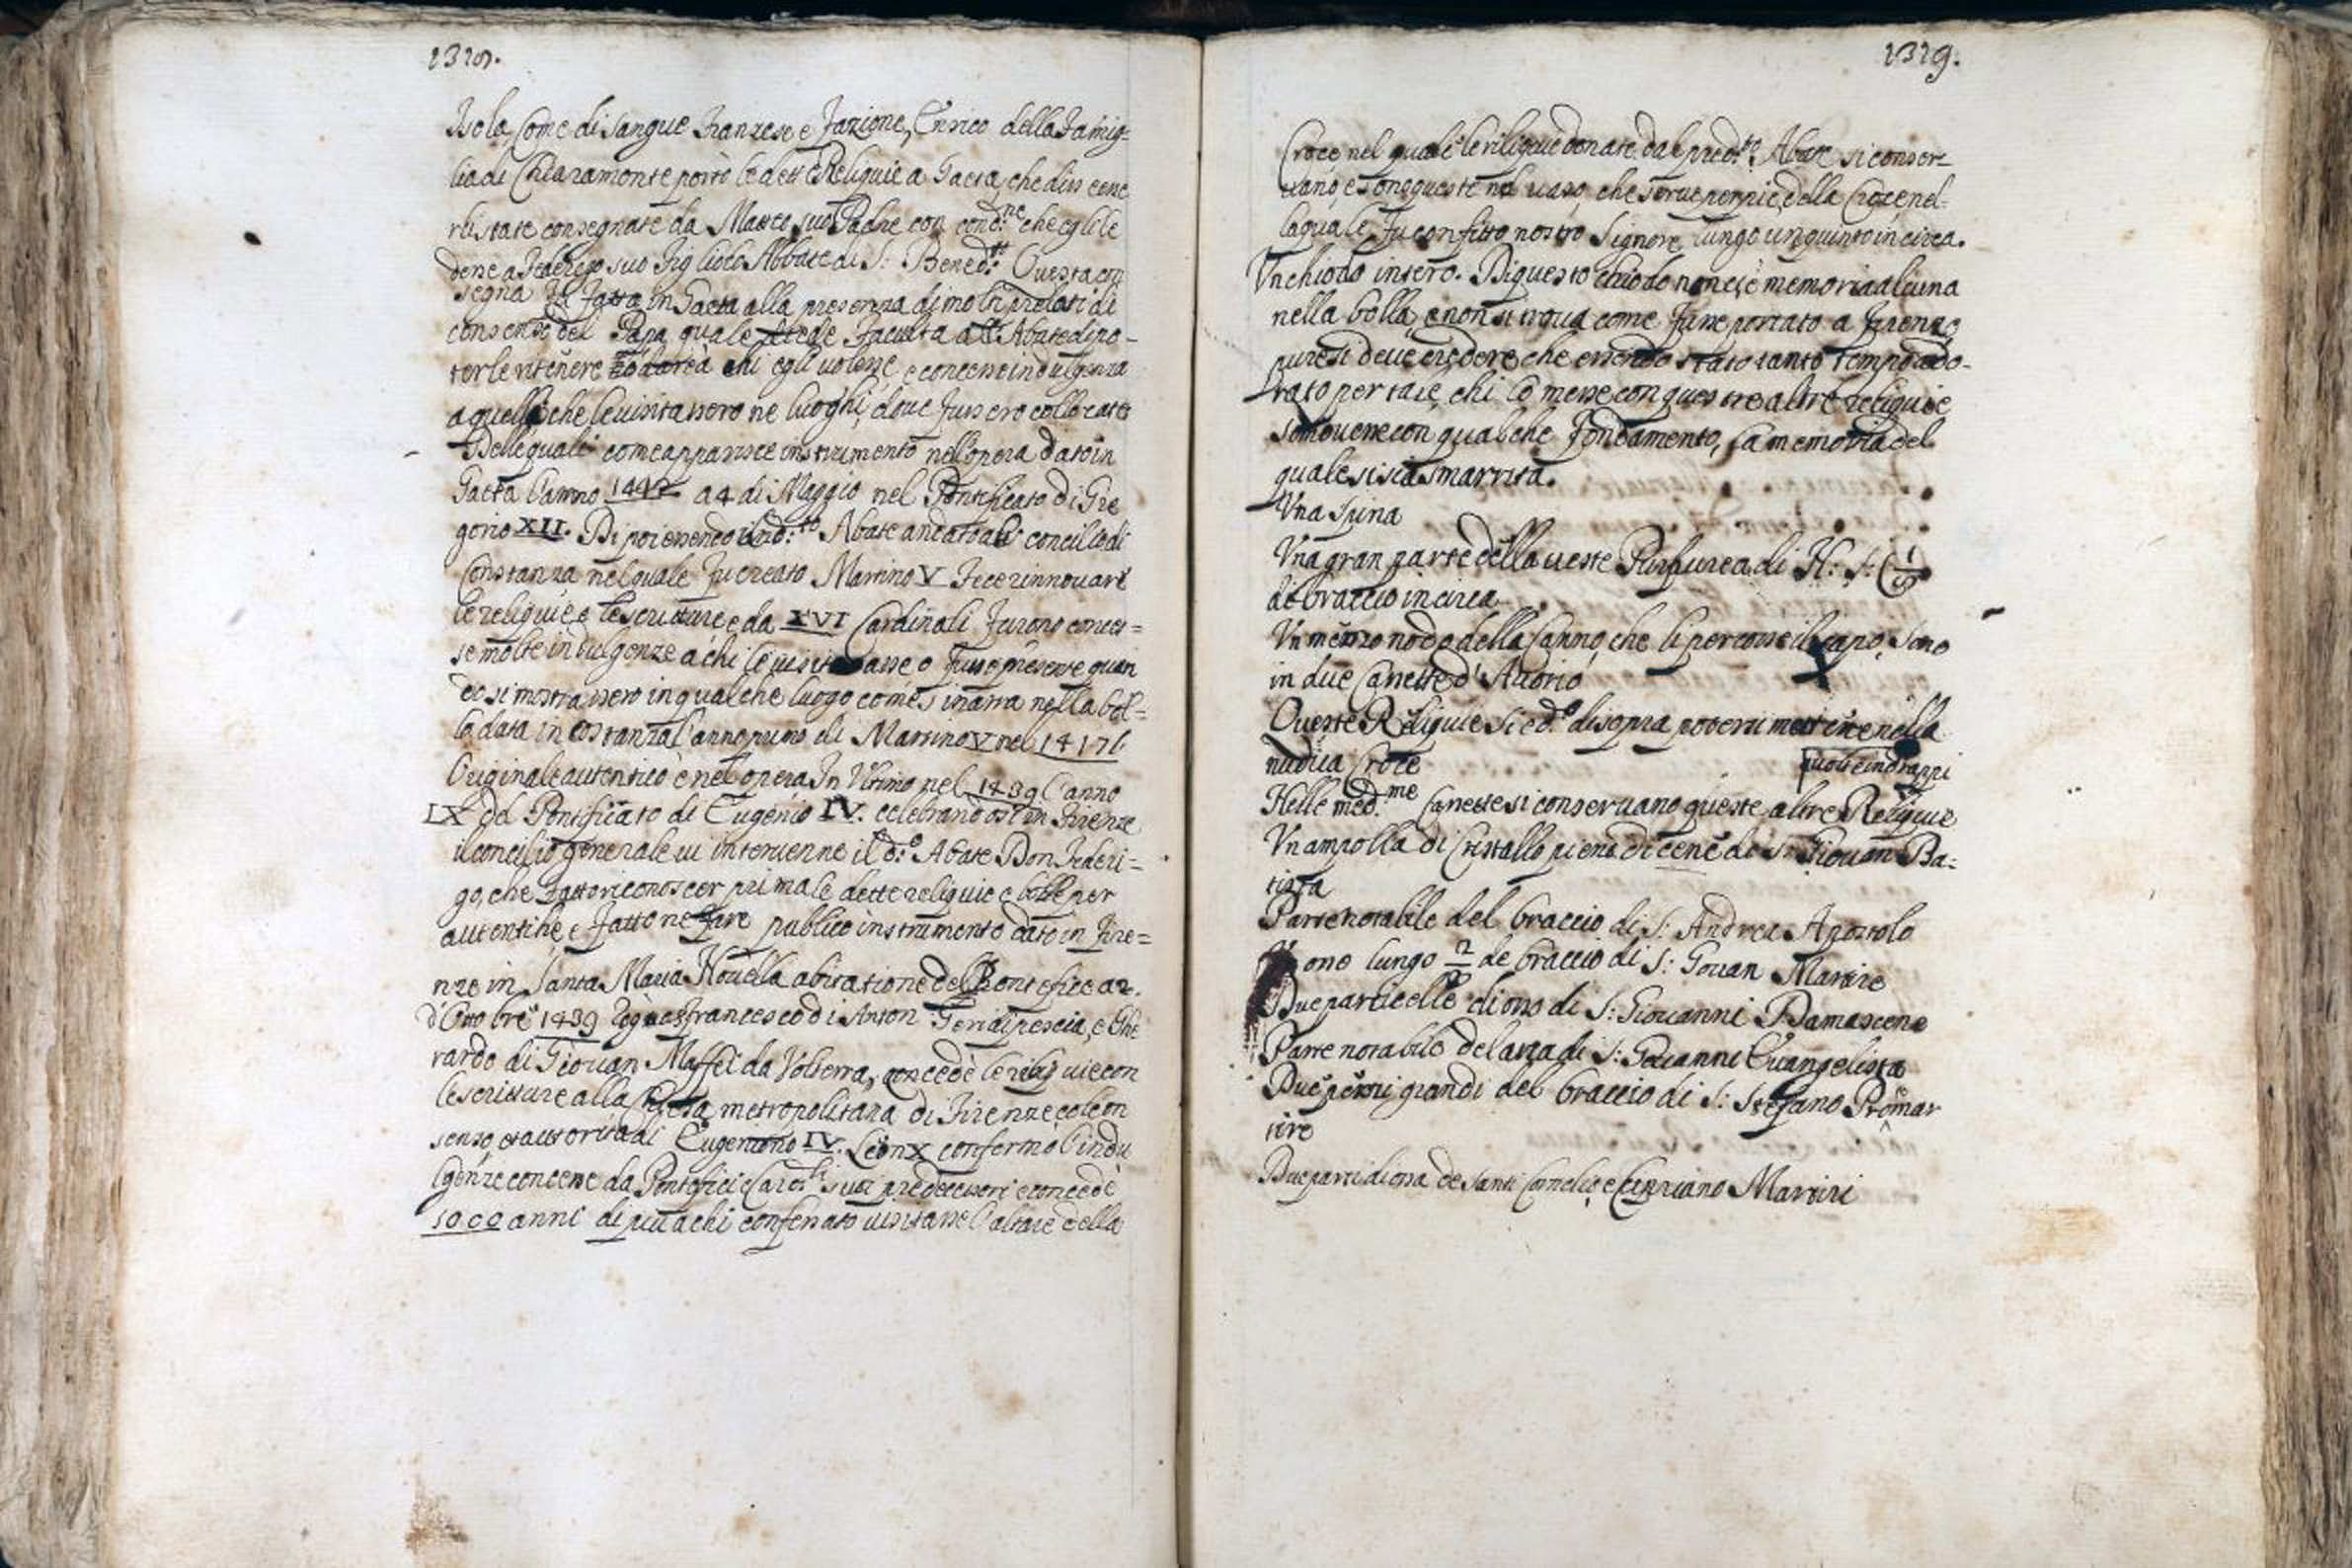 1328.
Isola, Come di sangue Franzese e Fazione, Enrico della Famig=
lia di Chiaramonte portò le dette Reliquie a Gaeta, che diss esse
rli state consegnate da Matteo suo Padre con cond.ne che egli le
desse a Federigo suo Figliolo Abbate di S: Bened.tto Questa con
segna fu fatta in Gaeta alla presenza di molti prelati di
consenso del Papa quale diede Faculta all Abate di po-
terle ritenere chi egli volesse, e concesse indulgenza
a quelli che le visitassero ne luoghi, dove Fussero collocate
Delle quali come apparisce instrumento nell opera dato in
Gaeta l'anno a 4 di Maggio nel Pontificato di Gre
gorio XII. Di poi essendo il Abate andato al concilio di
Constanza nel quale Fu creato Martino V Fece rinnovare
le reliquie, e le scritture e da XVI Cardinali Furono conces=
se molte indulgenze a chi le visitasse o Fusse presente quan
do si mostrassero in qualche luogo come s inarra nella bol=
la data in Costanza l'anno primo di Martino V nel 1417 l
Originale autentico è nel opera In Ultimo nel 1439 l'anno
IX del Pontificato di Eugenio IV. celebrandosi in Firenze
il concilio generale vi intervenne il d:o Abate Don Federi=
go, che Fatto riconoscer prima le dette reliquie e bolle per
autentiche, e Fattone Fare publico instrumento dato in Fire=
nze in Santa Maria Novella abitatione del Pontefice a 2.
d'Ottobre 1439 Francesco di Anton da pescia, e Ghe
rardo di Giovan Maffei da Volterra, concedè le reliquie con
le scritture alla Chiesa metropolitana di Firenze col con
senso, et autorità di Eugenio IV. Leon X confermò l'indu
lgenze concesse da Pontefici e suoi predecessori e concedè
1000 anni di piu a chi confessato visitasse l'altare della
1329.
Croce nel quale le reliquie donate dal pred.to Abate si conser=
vano, e sono queste nel vaso, che serve per piè, della Croce nel=
la quale Fu confitto nostro Signore lungo un quinto in circa.
Un chiodo intero. Di questo chiodo non ci è memoria alcuna
nella bolla, e non si truova come Fusse portato a Firenze
pure si deve credere che essendo stato tanto tempo ado-
rato per tale, chi lo messe con queste altre reliquie
con qualche Fondamento, la memoria del
quale si sia smarrita.
Una Spina
Una gran parte della veste Purpurea di N: S: (1/5
di braccio in circa
Un mezzo nodo della Canna, che li percosse il capo, Sono
in due Canette d'Avorio
Queste Reliquie si è d.o di sopra potersi mettere nella
nudua Croce
involte in drappi
Nelle med.me Canette si conservano queste altre Reliquie
Un ampolla di Cristallo piena di cene di S: Giovan Ba=
tista
Parte notabile del braccio di S: Andrea Apostolo
ono lungo 2/ de braccio di S: Giovan Martire
Due particelle di osso di S: Giovanni Damascene
Parte notabile del di S: Giovanni Evangelista
Due pezzi grandi del braccio di S: Stefano Promar
tire
Due parti di ossa de Santi Cornelio, e Cipriano Martiri